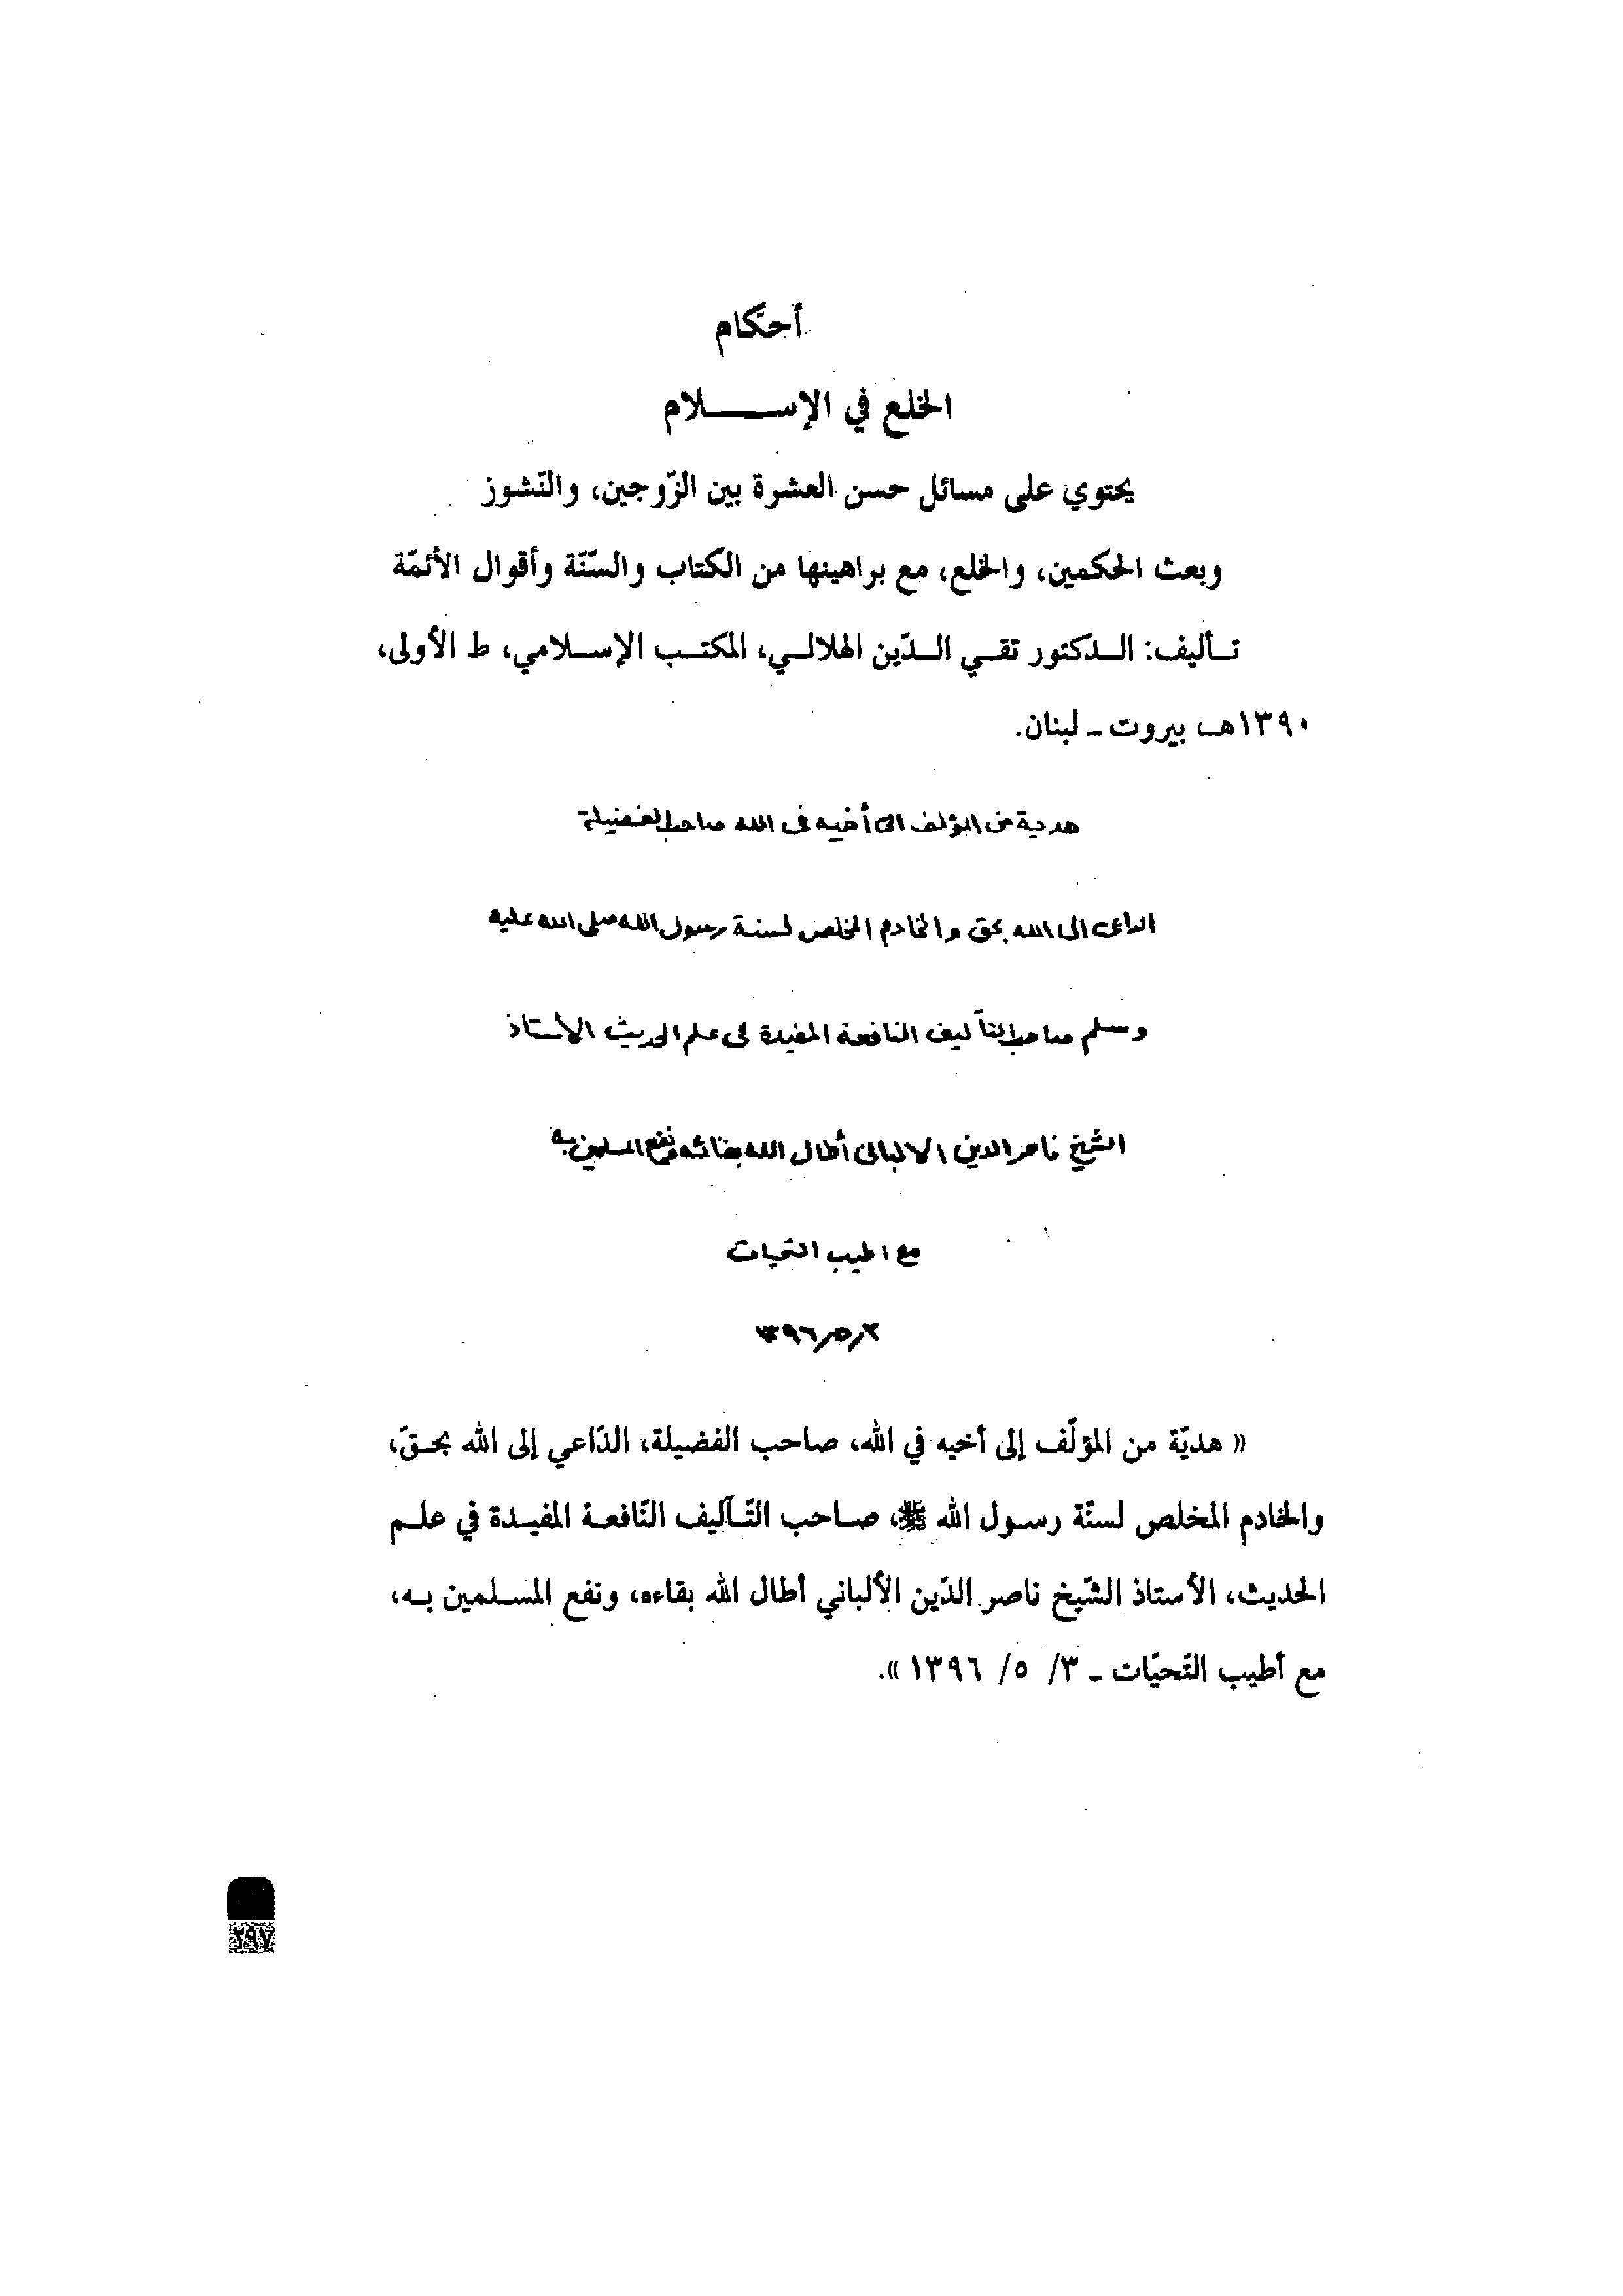 أحكام
الخلع في الإســـــلام
يحتوي على مسائل حسن العشرة بين الزّوجين، والنّشوز
وبعث الحكمين، والخلع، مع براهينها من الكتاب والسّنّة وأقوال الأئمّة
تـأليف: الـدكتور تقـي الـدّين الهلالـي، المكتـب الإسـلامي، ط الأولى،
١٣٩٠هـ، بيروت ـ لبنان.
هدية من المؤلف الى أخيه فى الله صاحب الفضيلة
الداعى الى الله بحق والخادم المخلص لسنة رسول الله صلى الله عليه
وسلم صاحب التآليف النافعة المفيدة فى علم الحديث الأستاذ
الشيخ ناصر الدين الالبانى أطال الله بقائه ونفع المسلمين به
مع اطيب التحيات
٣/٥/١٣٩٦
« هديّة من المؤلّف إلى أخيه في الله، صاحب الفضيلة، الدّاعي إلى الله بحـقّ،
والخادم المخلص لسنّة رسـول الله ﷺ، صـاحب التّـآليف النّافعـة المفيـدة في علـم
الحديث، الأستاذ الشّيخ ناصر الدّين الألباني أطال الله بقاءه، ونفع المسـلمين بـه،
مع أطيب التّحيّات ـ ٣/ ٥/ ١٣٩٦ ».
٢٩٧